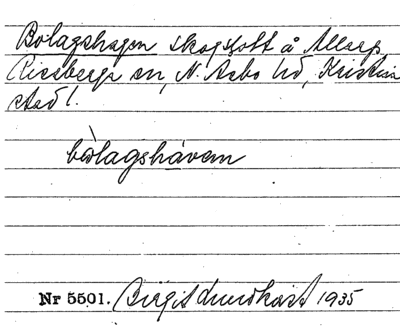 Bolagshagen skogstott å Allarp,
Riseberga sn, N. Åsbo hd, Kristian
stad l.
bòlagshávem
Nr 5501. Birgit Lundkvist 1935